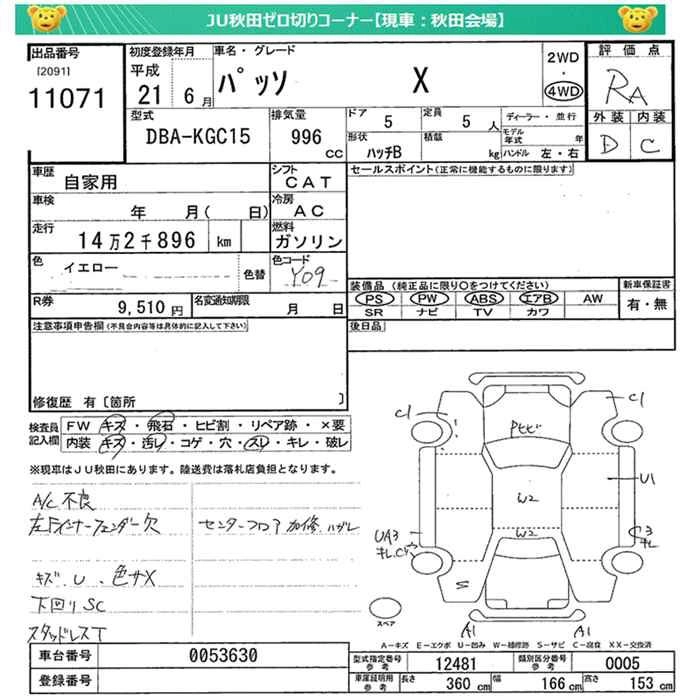 JU秋田ゼロ切りコーナー【現車：秋田会場】
出品番号
[2091]
11071
初度登録年月
平成
21 6月
車名・グレード
パッソ X
2WD
・
4WD
評価点
RA
外装 内装
D C
型式
DBA-KGC15
排気量
996
cc
ドア
5
定員
5 人
形状
ハッチB
積載
kg
ディーラー・並行
モデル年式 年
ハンドル 左・右
車歴
自家用
シフト
CAT
車検
年 月( 日)
冷房
AC
走行
14万2千896 km
燃料
ガソリン
色
イエロー
色替
色コード
Y09
R券
9,510円
名変通知期限
月 日
セールスポイント(正常に機能するものに限ります)
装備品 (純正品に限り○をつけてください)
PS PW ABS エアB AW
SR ナビ TV カワ
新車保証書
有・無
後日品
注意事項申告欄(不具合内容等は具体的に記入して下さい)
修復歴 有〔箇所 〕
検査員記入欄
FW キズ・飛石・ヒビ割・リペア跡・×要
内装 キズ・汚レ・コゲ・穴・スレ・キレ・破レ
※現車はJU秋田にあります。陸送費は落札店負担となります。
A/C 不良
左Fインナーフェンダー欠
センターフロア 加修、ハガレ
キズ、U、色サX
下回りSC
スタッドレスT
C1
C1
W2
U1
W2
UA3
C3
キレ
S
A1
A1
スペア
A－キズ E－エクボ U－凹み W－補修跡 S－サビ C－腐食 XX－交換済
車台番号
0053630
登録番号
型式指定番号 参考
12481
類別区分番号 参考
0005
車庫証明用 参考
長さ 360 cm
幅 166 cm
高さ 153 cm